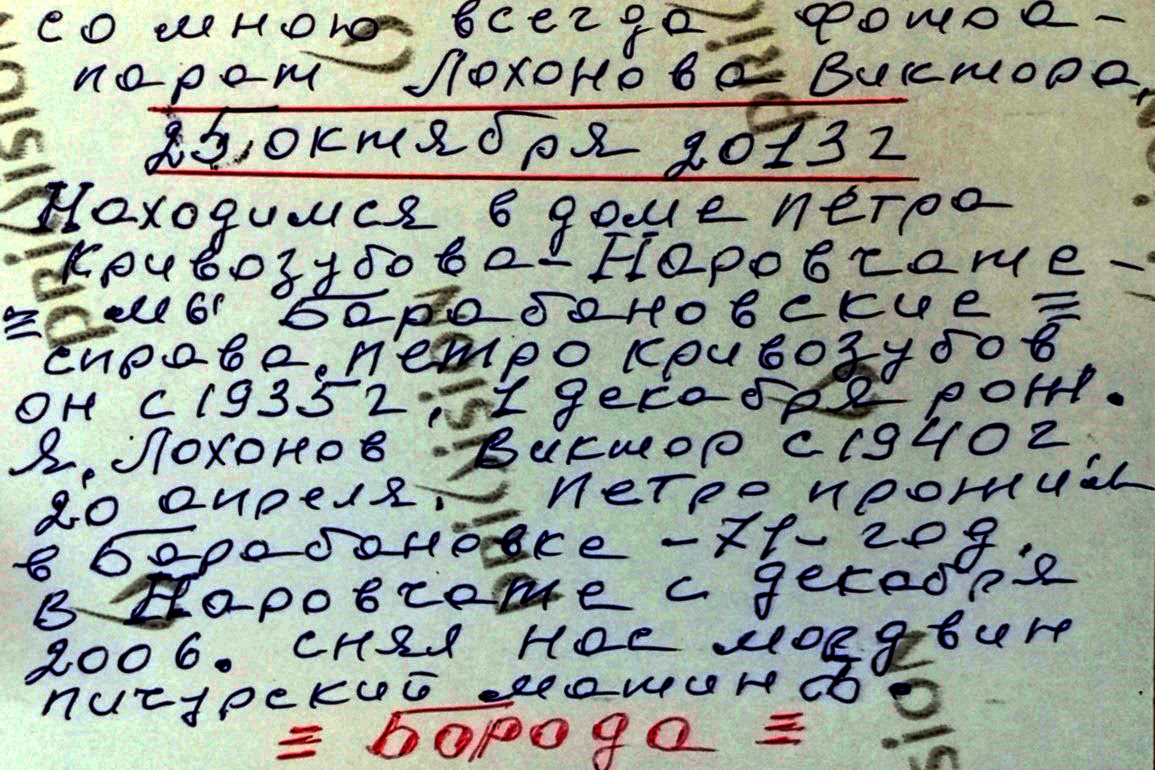 со мною всегда фотоа-
парат Лохонова Виктора,
25 октября 2013г
Находимся в доме Петра
Кривозубова-Наровчате-
≡ мы Барабановские ≡
справа, Петро Кривозубов
он с 1935г, 1 декабря рож.
Я, Лохонов Виктор с 1940г
20 апреля. Петро прожил
в Барабановке -71- год,
в Наровчате с декабря
2006. снял нас мордвин
пичурский
≡ Борода ≡